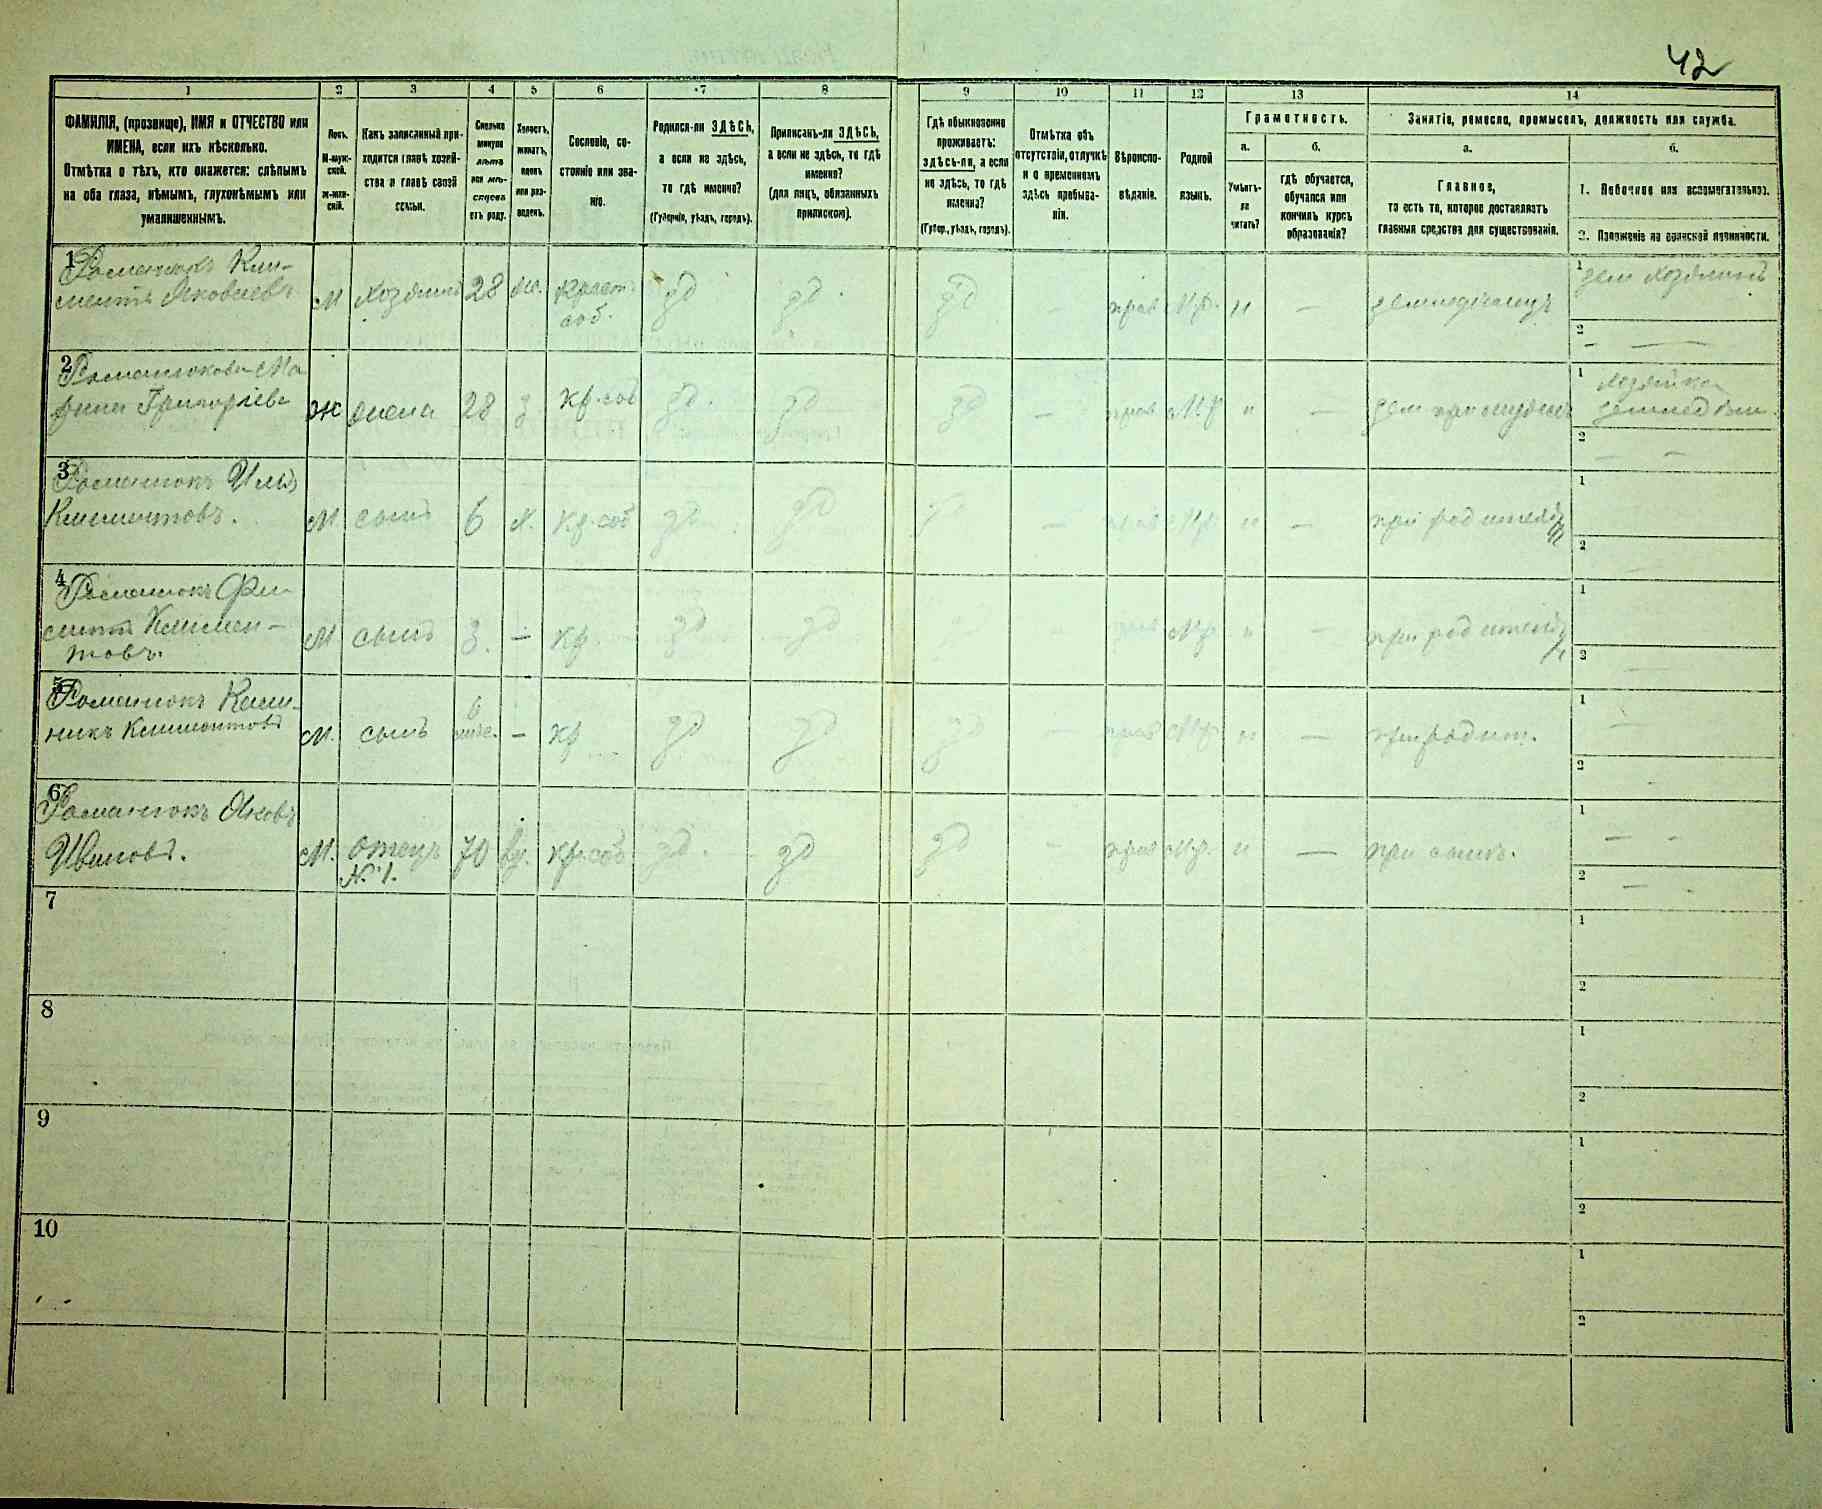 42
1
2
3
4
5
6
7
8
9
10
11
12
13
14
ФАМИЛІЯ, (прозвище), ИМЯ и ОТЧЕСТВО или
ИМЕНА, если ихъ нѣсколько.
Отмѣтка о тѣхъ, кто окажется: слѣпымъ
на оба глаза, нѣмымъ, глухонѣмымъ или
умалишеннымъ.
Полъ.
М-муж-
ской.
Ж-жен-
скій.
Какъ записанный при-
ходится главѣ хозяй-
ства и главѣ своей
семьи.
Сколько
минуло
лѣтъ
или мѣ-
сяцевъ
отъ роду.
Холостъ,
женатъ,
вдовъ
или раз-
веденъ.
Сословіе, со-
стояніе или зва-
ніе.
Родился-ли ЗДѢСЬ,
а если не здѣсь,
то гдѣ именно?
(Губернія, уѣздъ, городъ).
Приписанъ-ли ЗДѢСЬ,
а если не здѣсь, то гдѣ
именно?
(для лицъ, обязанныхъ
припискою).
Гдѣ обыкновенно
проживаетъ:
здѣсь-ли, а если
не здѣсь, то гдѣ
именно?
(Губер., уѣздъ, городъ).
Отмѣтка объ
отсутствіи, отлучкѣ
и о временномъ
здѣсь пребыва-
ніи.
Вѣроиспо-
вѣданіе.
Родной
языкъ.
Грамотность.
а.
Умѣетъ-
ли
читать?
б.
гдѣ обучается,
обучался или
кончилъ курсъ
образованія?
Занятіе, ремесло, промыселъ, должность или служба.
а.
Главное,
то есть то, которое доставляетъ
главныя средства для существованія.
б.
1. Побочное или вспомогательное.
2. Положеніе по воинской повинности.
1
Романюкъ Кли-
ментъ Яковлевъ
М хозяинъ 28 же. крест.
соб. зд зд зд - прав М.р. н - земледѣлецъ
1 зем хозяинъ
2 - -
2
Романюкова Ма
Григорiева
Ж жена 28 з кр. соб зд. зд зд - прав М.р н - зем при мужѣ
1 хозяйка
2 - -
3
Романюкъ Илья
Климентовъ.
М сынъ 6 х. кр. соб зд зд зд - прав М.р. н - при родителях
1
2
4
Романюкъ
Климен-
товъ.
М сынъ 3. - кр. зд зд - прав М.р н - при родителях
1
2
5
Романюкъ
Климентовъ
М. сынъ 6
мѣс. - кр зд зд зд - прав М.р. н - при родит.
1 -
2 -
6
Романюкъ Яковъ
Ивановъ.
М. отецъ
№ 1. 70 вд. кр. соб зд. зд зд - прав М.р. н - при сынѣ.
1 - -
2 - -
7
1
2
8
1
2
9
1
2
10
1
2